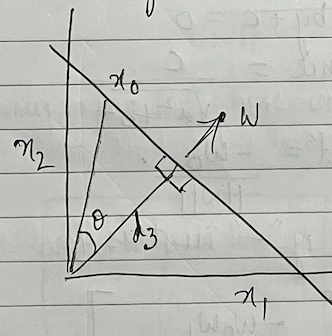 x₀
W
x₂
θ
d₃
x₁